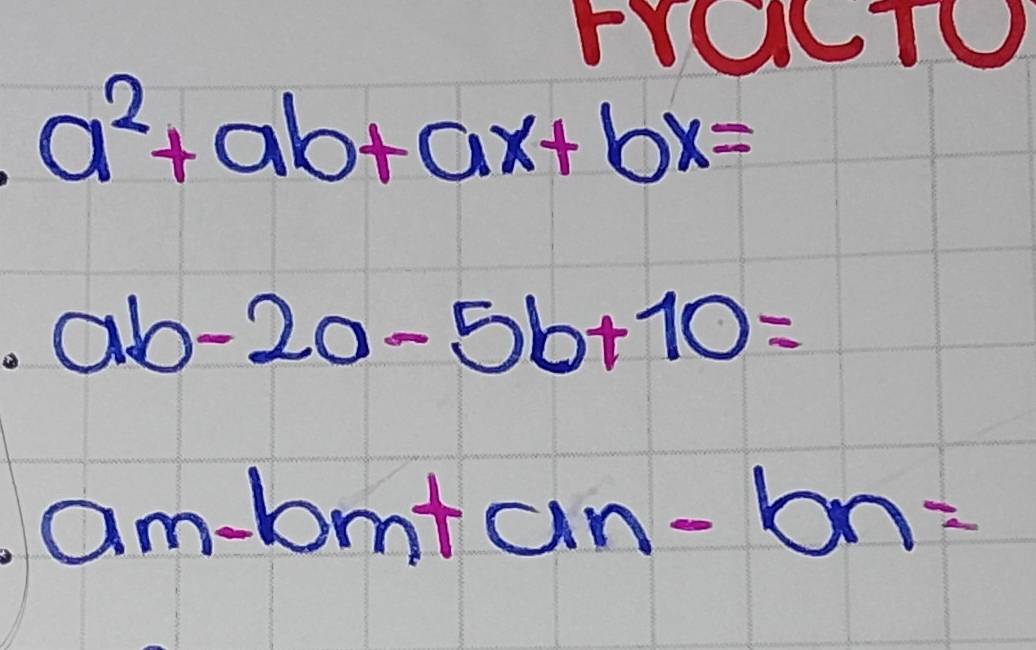 Fracto
a²+ab+ax+bx=
ab-2a-5b+10=
am-bm+an-bn=